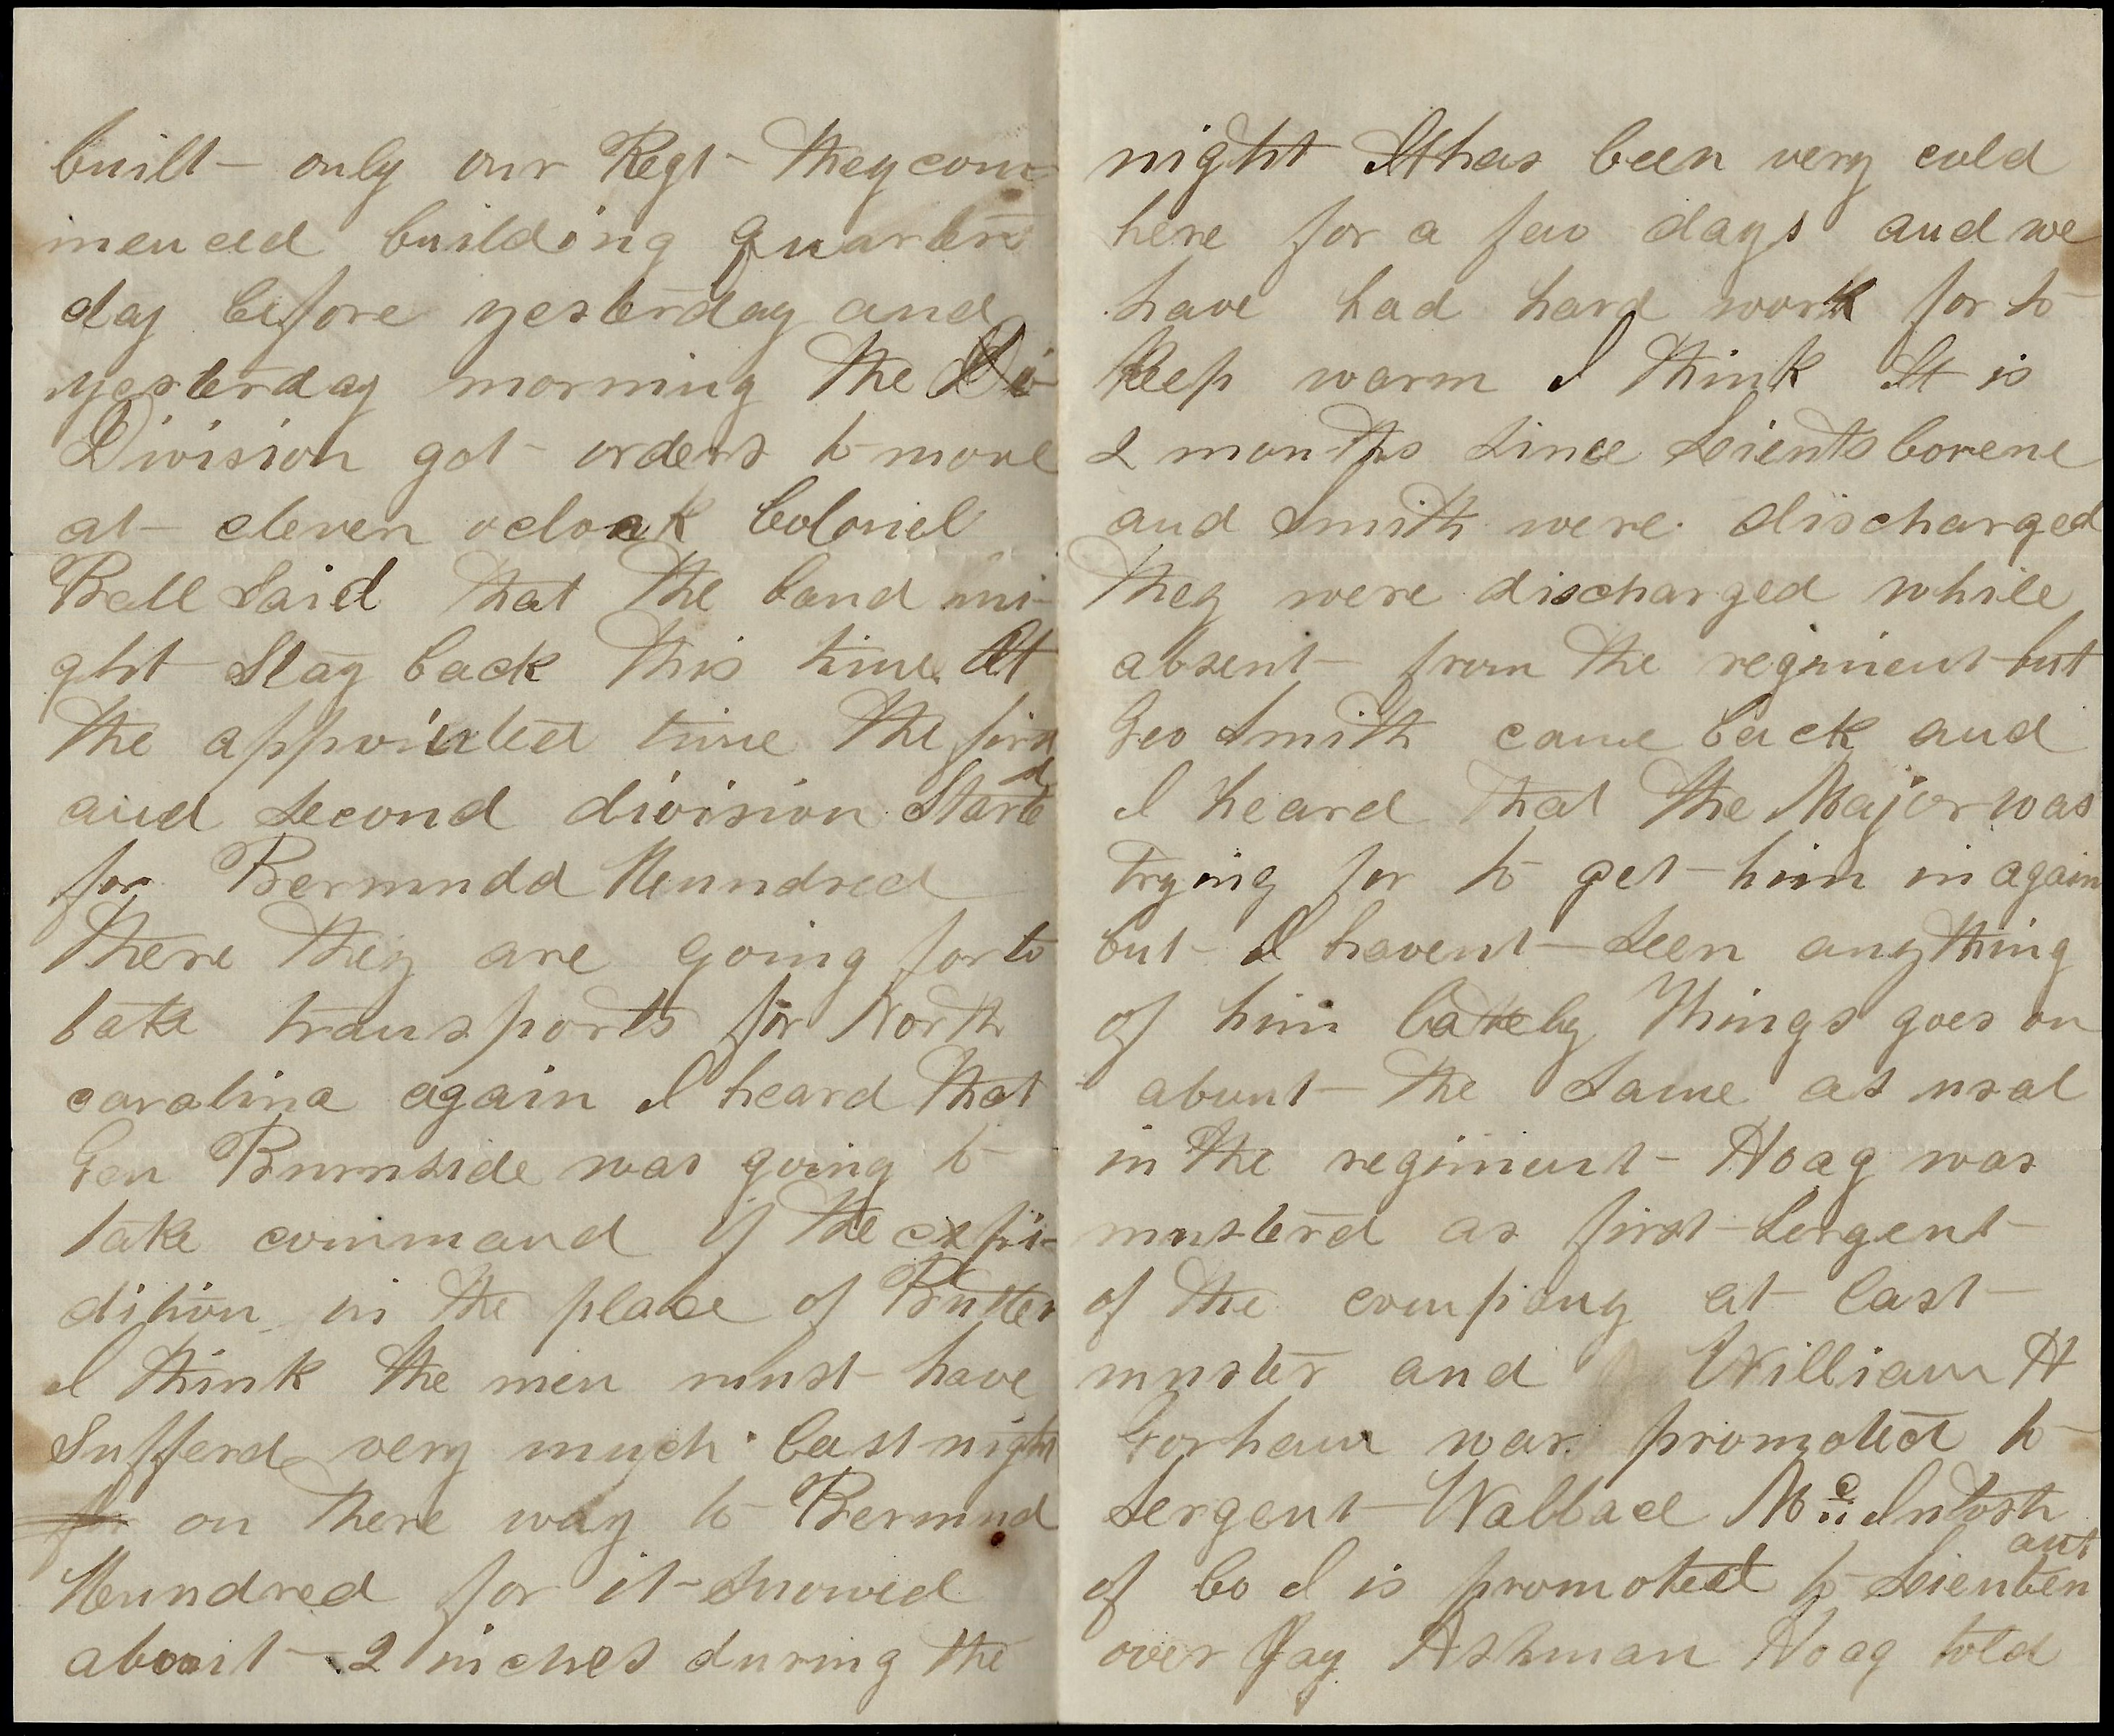 built only our Regt they com-
menced building quarters
day before yesterday and
yesterday morning the Di-
Division got orders to move
at eleven oclock Colonel
Bell Said that the band mi-
ght Stay back this time At
the appointed time the first
and Second division Started
for Bermudd Hunndred
There they are going for to
take transports for North
carolina again I heard that
Gen Burnside was going to
take command of the expi-
dition in the place of Butler
I think the men must have
Sufferd very much last night
for on there way to Bermud
Hundred for it Snowed
about 2 inches during the
night It has been very cold
here for a few days and we
have had hard work for to
Keep warm I think It is
2 months Since Lients
and Smith were discharged
They were discharged while
absent from the regiment but
Geo Smith came back and
I heard that the Major was
trying for to get him in again
but I havent Seen anything
of him lately Things goes on
about the Same as usal
in the regiment Hoag was
musterd as first Sergent
of the company at last
muster and William H
Gorham was promoted to
Sergent Wallace Mc Intosh
of Co I is promoted to Lieutenant
over Jay Ashman Hoag told